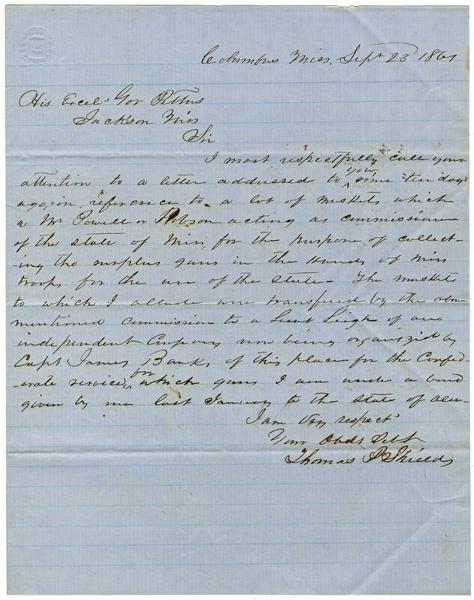 Columbus Miss, Sept 23 1861
His Excel. Gov Pettus
Jackson Miss
Sir
I most respectfully call your
attention to a letter addressed to you some ten days
ago, in reference to a lot of muskets which
a Mr Powell or acting as commissioner
of the state of Miss, for the purpose of collect-
ing the surplus guns in the hands of Miss
troops for the use of the State - The muskets
to which I allude were transfered by the above
mentioned commission to a Lieut Leigh of an
independent Company now being organized by
Capt James Banks of this place for the Confed-
erate service, for which guns I am under a bond
given by me last January to the state of
I am Very respect
Your Obdt Svt
Thomas P Shields